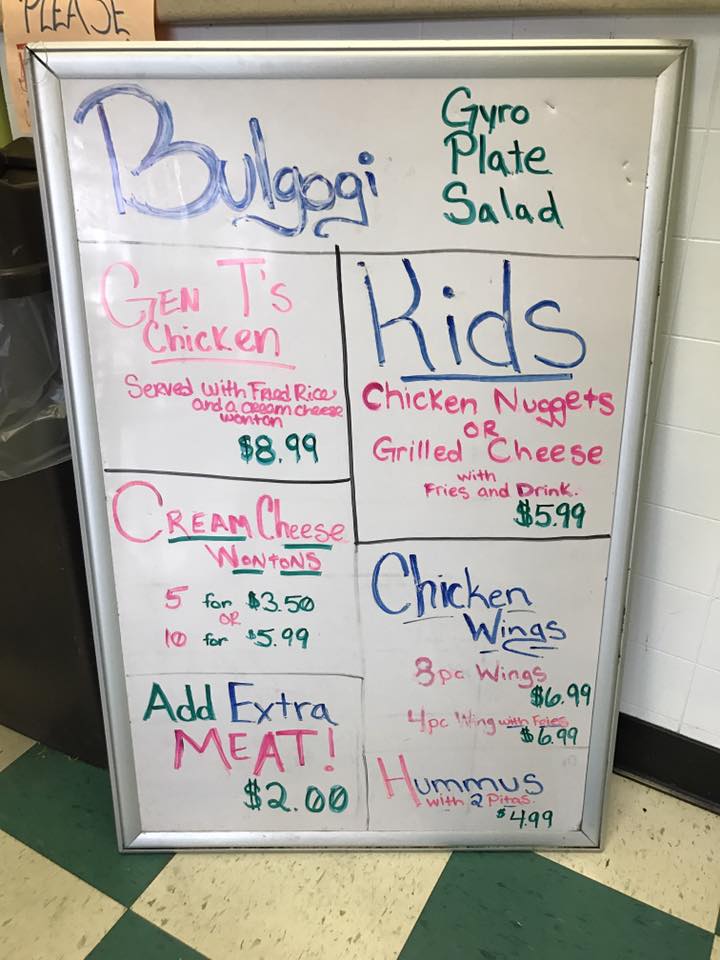 PLEASE
Bulgogi
Gyro
Plate
Salad
GEN T's
Chicken
Served with Fried Rice
and a cream cheese
wonton
$8.99
Kids
Chicken Nuggets
OR
Grilled Cheese
with
Fries and Drink.
$5.99
CREAM Cheese
WONtONS
5 for $3.50
OR
10 for $5.99
Chicken
Wings
8pc Wings
$6.99
4pc Wing with Fries
$6.99
Add Extra
MEAT!
$2.00
Hummus
with 2 Pitas.
$4.99